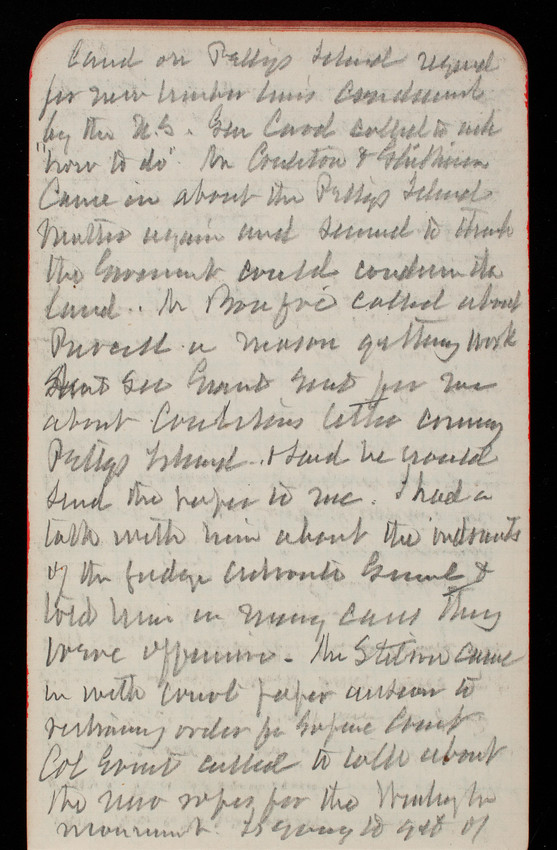 land on Pettys Island required
for new harbor lines condemned
by the U.S. Gen Card called to ask
"how to do". Mr Coulston &
Came in about the Pettys Island
matter again and seemed to think
the Goverment could condemn the
land. Mr called about
Purcell a mason getting work
Sec Grant sent for me
about Coulstons letter coming
Pettys Island & said he would
send the paper to me. I had a
talk with him about the indorsmts
of the Judge Advocate Genrl &
told him in many cases they
were offensive - Mr Stetson came
in with court paper answer to
restraing order fr Supme Court
Col Grant called to talk about
the new ropes for the Washington
monument. Is going to get of